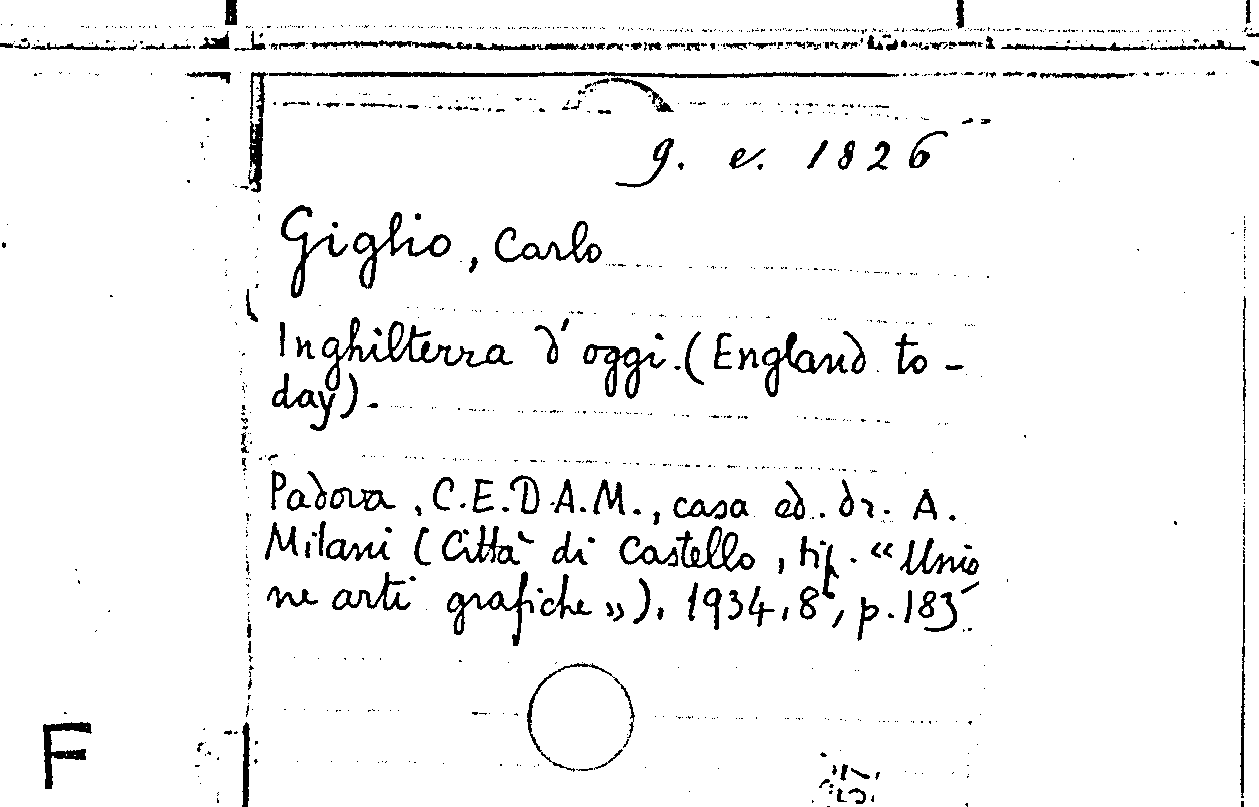 g. e. 1826
Giglio, Carlo
Inghilterra d'oggi. (England to-
day).
Padova, C.E.D.A.M., casa ed. dr. A.
Milani (Città di Castello, tip. “Unio
ne arti grafiche»), 1934, 8°, p. 183
F